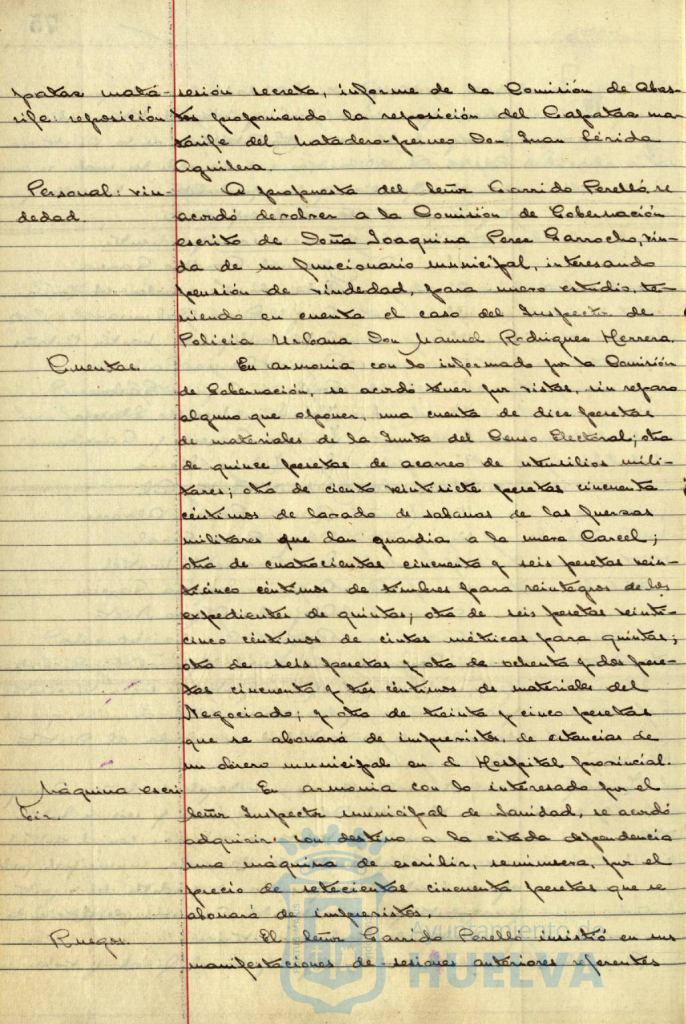 patas mata- sesión secreta, informe de la Comisión de Abas-
rife: reposición tos proponiendo la reposición del Capataz ma-
tarife del Matadero-perneo Don Juan Cérida
Aguilera.
Personal: viu- A propuesta del Señor Garrido Perelló, se
dedad. acordó devolver a la Comisión de Gobernación
escrito de Doña Joaquina Perez Garrocho, viu-
da de un funcionario municipal, interesando
pensión de viudedad, para nuevo estudio, te-
niendo en cuenta el caso del Inspector de
Policia Urbana Don Manuel Rodriguez Herrera.
Cuentas. En armonia con lo informado por la Comisión
de Gobernación, se acordó tener por vistas, sin reparo
alguno que oponer, una cuenta de diez pesetas
de materiales de la Junta del Censo Electoral; otra
de quince pesetas de acarreo de utensilios mili-
tares; otra de ciento veintisiete pesetas cincuenta
céntimos de lavado de sabanas de las fuerzas
militares que dan guardia a la nueva Carcel;
otra de cuatrocientas cincuenta y seis pesetas vein-
ticinco céntimos de timbres para reintegros de los
expedientes de quintas; otra de seis pesetas veinti-
cinco céntimos de cintas métricas para quintas;
otra de seis pesetas y otra de ochenta y dos pese-
tas cincuenta y tres céntimos de materiales del
Negociado; y otra de treinta y cinco pesetas
que se abonará de imprevistos, de estancias de
un obrero municipal en el Hospital provincial.
Máquina escri- En armonia con lo interesado por el
bir. Señor Inspector municipal de Sanidad, se acordó
adquirir con destino a la citada dependencia
una máquina de escribir, seminueva, por el
precio de setecientas cincuenta pesetas que se
abonará de imprevistos.
Ruegos. El Señor Garrido Perelló insistió en sus
manifestaciones de sesiones anteriores referentes
Ayuntamiento
HUELVA